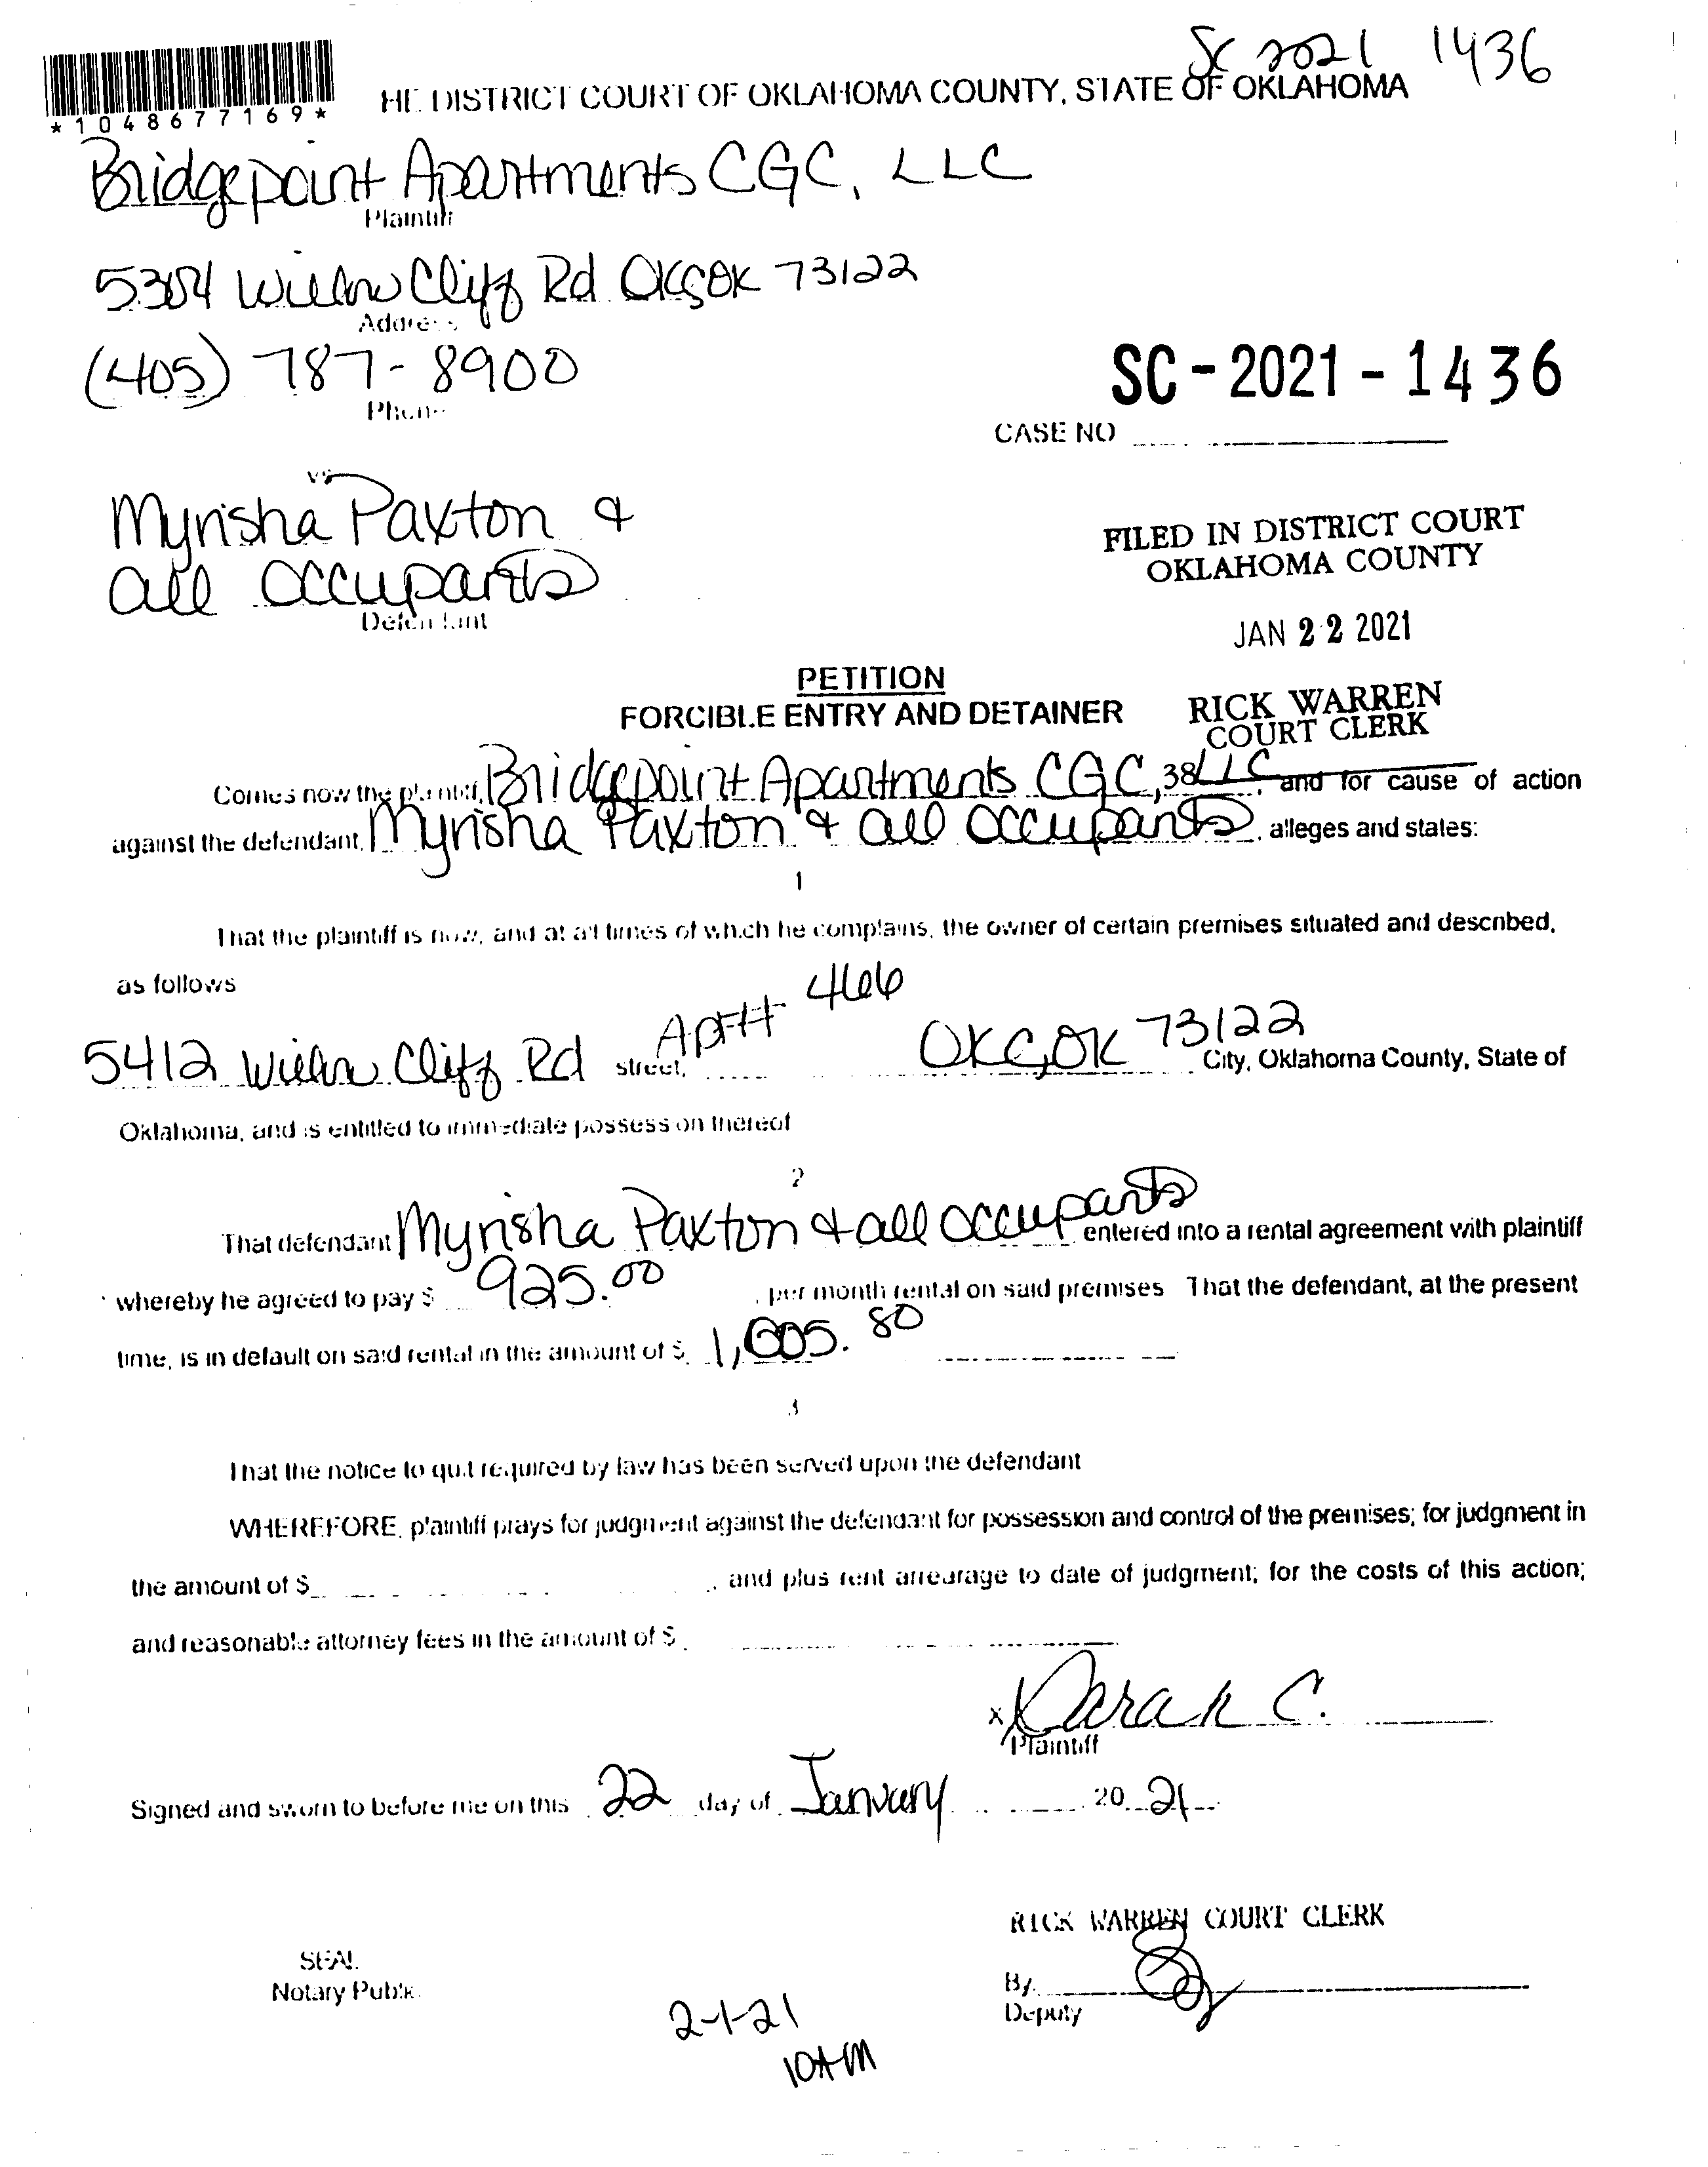 SC 2021 1436
*1048677169*
HE DISTRICT COURT OF OKLAHOMA COUNTY, STATE OF OKLAHOMA
Bridgepoint Apartments CGC, LLC
Plaintiff
5304 Willow Cliff Rd OKC, OK 73122
Address
(405) 787-8900
Phone
SC-2021-1436
CASE NO
vs
Myrisha Paxton &
all occupants
Defendant
FILED IN DISTRICT COURT
OKLAHOMA COUNTY
JAN 22 2021
PETITION
FORCIBLE ENTRY AND DETAINER
RICK WARREN
COURT CLERK
38
Comes now the plaintiff, Bridgepoint Apartments CGC, LLC, and for cause of action
against the defendant, Myrisha Paxton & all occupants, alleges and states:
1
That the plaintiff is now, and at all times of which he complains, the owner of certain premises situated and described,
as follows
5412 Willow Cliff Rd street, Apt# 466 OKC, OK 73122 City, Oklahoma County, State of
Oklahoma, and is entitled to immediate possession thereof
2
That defendant Myrisha Paxton & all occupants entered into a rental agreement with plaintiff
whereby he agreed to pay $ 925.00, per month rental on said premises That the defendant, at the present
time, is in default on said rental in the amount of $ 80
3
That the notice to quit required by law has been served upon the defendant
WHEREFORE, plaintiff prays for judgment against the defendant for possession and control of the premises; for judgment in
the amount of $ , and plus rent arrearage to date of judgment; for the costs of this action;
and reasonable attorney fees in the amount of $
x C.
Plaintiff
Signed and sworn to before me on this 22 day of January 20 21
RICK WARREN COURT CLERK
SEAL
Notary Public
By
Deputy
2-1-21
10AM